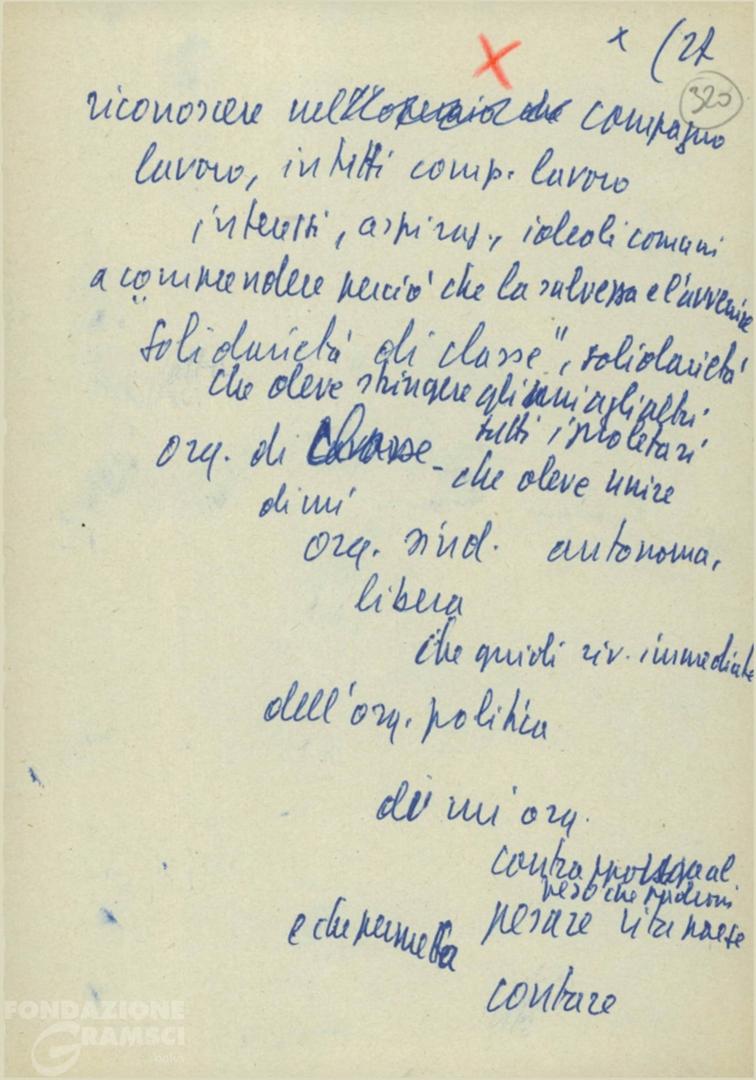 x (27
325
riconoscere nell'operaio che compagno
lavoro, in tutti comp. lavoro
interessi, aspiraz., ideali comuni
a comprendere perciò che la salvezza e l'avvenire
"solidarietà di classe", solidarietà
che deve stringere gli uni agli altri
tutti i proletari
org. di classe - che deve unire
di un'
org. sind. autonoma,
libera
che guidi riv. immediate
dell'org. politica
di un' org.
contrapponga al
peso che padroni
pesare vita paese
e che permetta
contare
FONDAZIONE
GRAMSCI